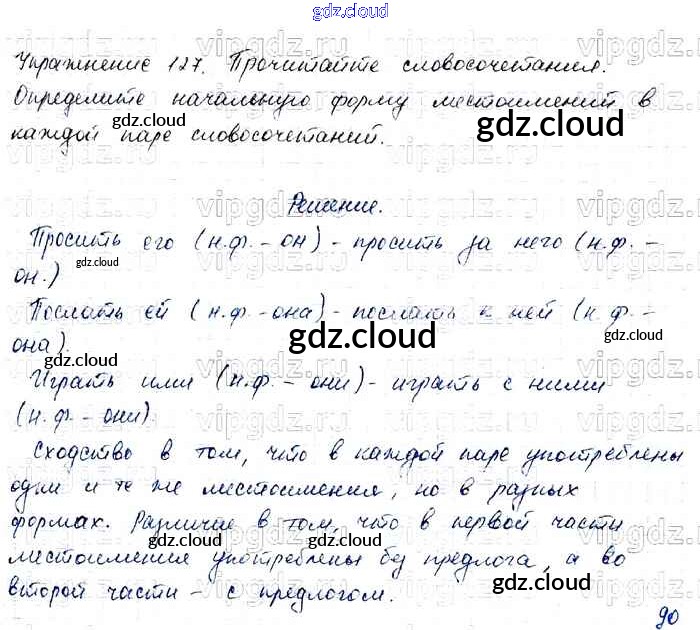 gdz.cloud
Упражнение 127. Прочитайте словосочетания.
Определите начальную форму местоимений в
каждой паре словосочетаний.
gdz.cloud
gdz.cloud
Решение.
Просить его (н.ф. – он) – просить за него (н.ф. –
он.)
gdz.cloud
Послать ей (н.ф. – она) – послать к ней (н.ф. –
она).
gdz.cloud
gdz.cloud
Играть ими (н.ф. – они) – играть с ними
(н.ф. – они).
gdz.cloud
Сходство в том, что в каждой паре употреблены
одни и те же местоимения, но в разных
формах. Различие в том, что в первой части
местоимения употреблены без предлога, а во
второй части – с предлогом.
gdz.cloud
gdz.cloud
gdz.cloud
90